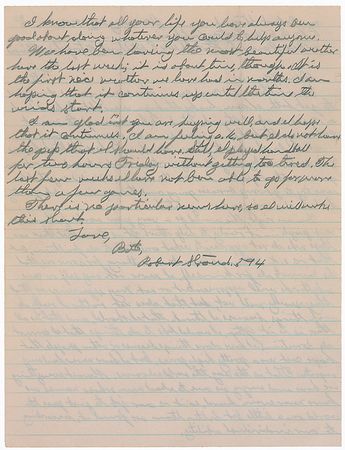 I know that all your life you have always been
good about doing whatever you could to help anyone.
We have been having the most beautiful weather
here the last week; it is about time, though. It is
the first nice weather we have had in months. I am
hoping that it continues up until the time the
winds start.
I am glad that you are feeling well, and I hope
that it continues. I am feeling o.k., but I do not have
the pep that I should have. Still I played hand ball
for two hours Friday without getting too tired. The
last few weeks I have not been able to go for more
than a few games.
There is no particular news here, so I will make
this short.
Love,
Bob,
Robert Stroud. 594